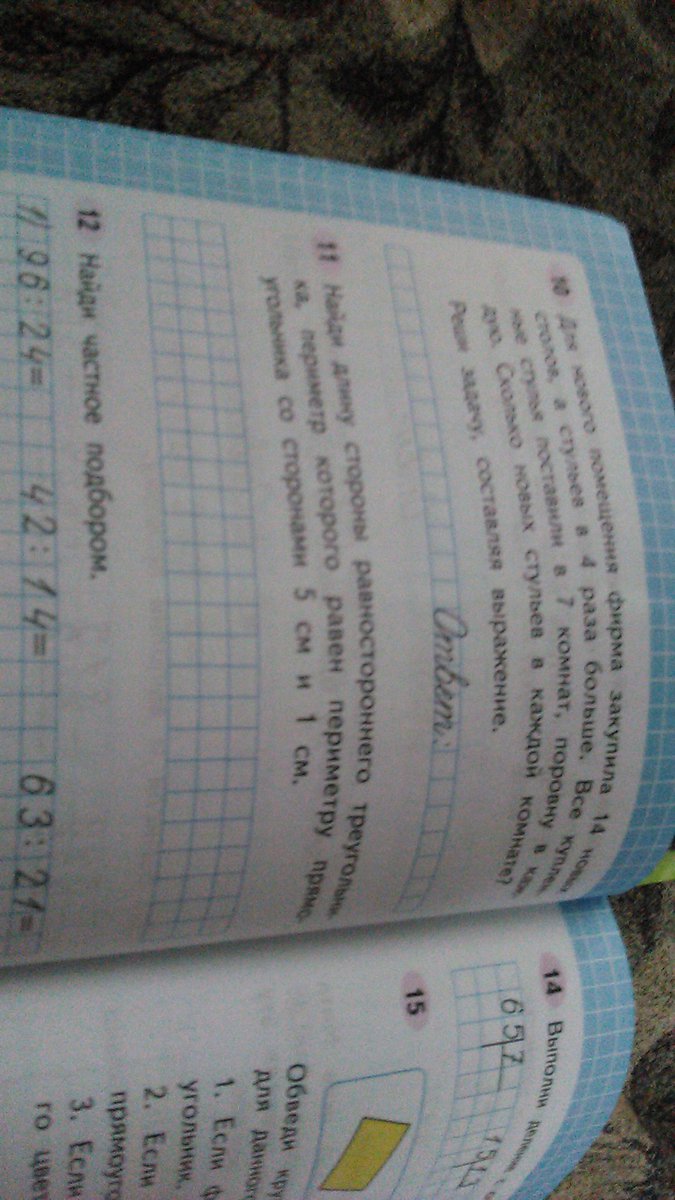 10 Для нового помещения фирма закупила 14 новых
столов, а стульев в 4 раза больше. Все куплен-
ные стулья поставили в 7 комнат, поровну в каж-
дую. Сколько новых стульев в каждой комнате?
Реши задачу, составляя выражение.
Ответ:
11 Найди длину стороны равностороннего треугольни-
ка, периметр которого равен периметру прямо-
угольника со сторонами 5 см и 1 см.
12 Найди частное подбором.
1) 96:24= 42:14= 63:21=
14 Выполни деление с
65 7
15
Обведи кру
для данного
1. Если ф
угольник,
2. Если
прямоуго
3. Если
го цвет